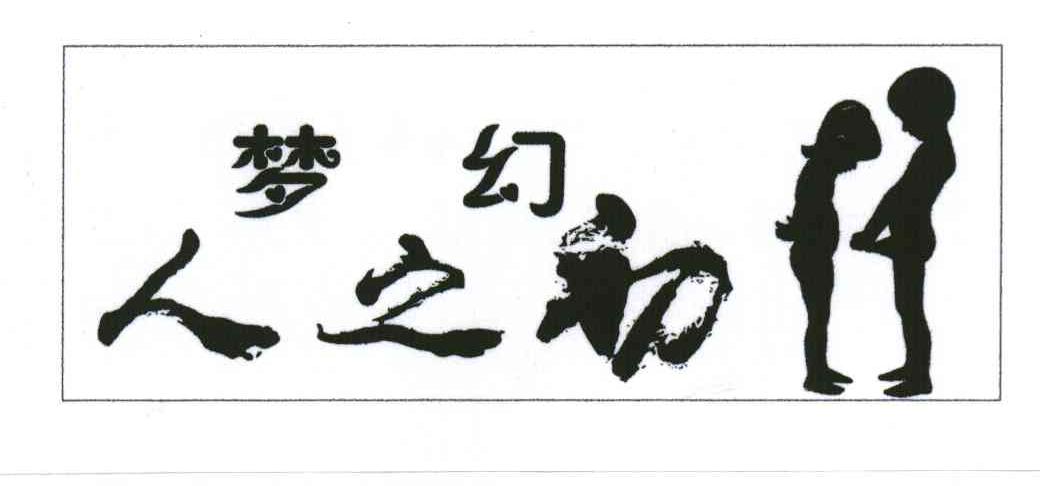 梦幻
人之初